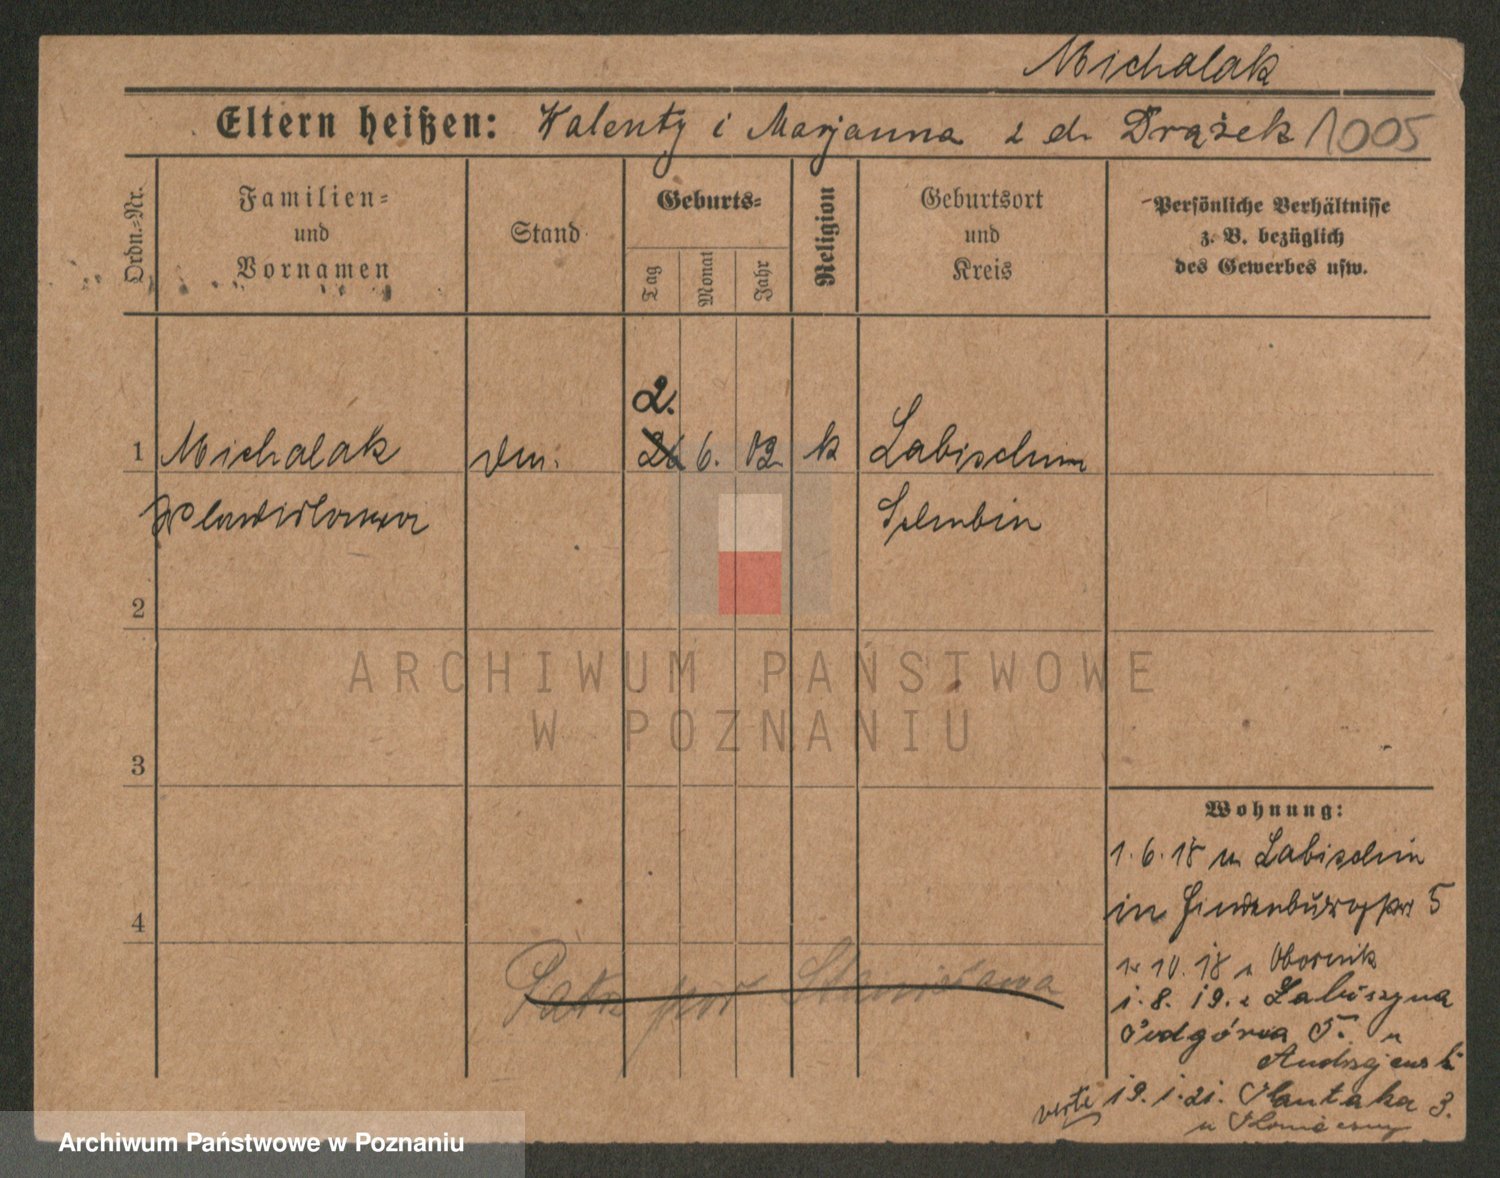 Michalak
Eltern heißen: Walenty i Marjanna z d. Drążek 1005
Ordn.-Nr.
Familien-
und
Vornamen
Stand
Geburts-
Tag
Monat
Jahr
Religion
Geburtsort
und
Kreis
Persönliche Verhältnisse
z. B. bezüglich
des Gewerbes usw.
2.
1 Michalak 26 6. 02. k Labischin
Schubin
2
ARCHIWUM PAŃSTWOWE
W POZNANIU
3
Wohnung:
1.6.18 Labischin
in Hindenburgstr 5
4
1.10.18 Obornik
1.8.19. z Łabiszyna
Podgórna 5. u
Andrzejewski
verte 19.1.21. 3.
Patrz pod Stanisława
Archiwum Państwowe w Poznaniu